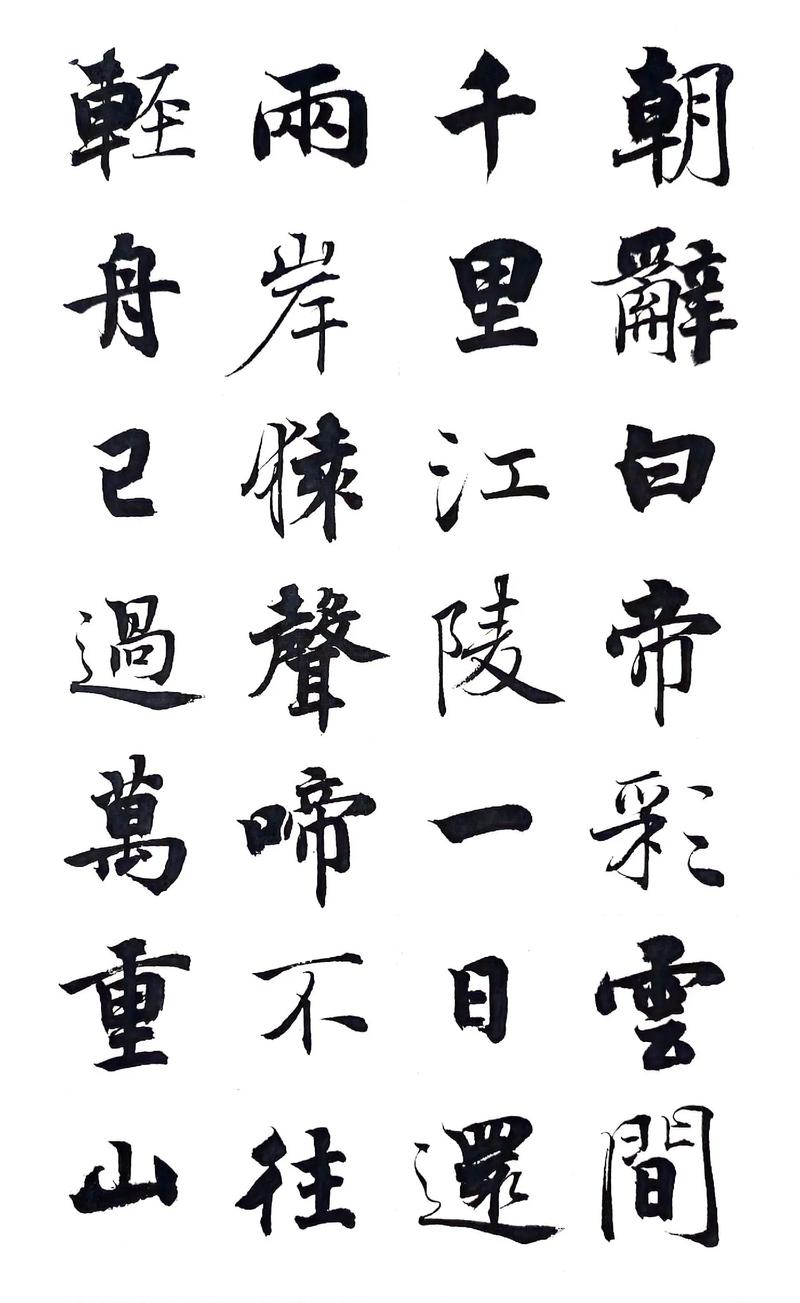 朝辭白帝彩雲間
千里江陵一日還
兩岸猿聲啼不往
輕舟已過萬重山